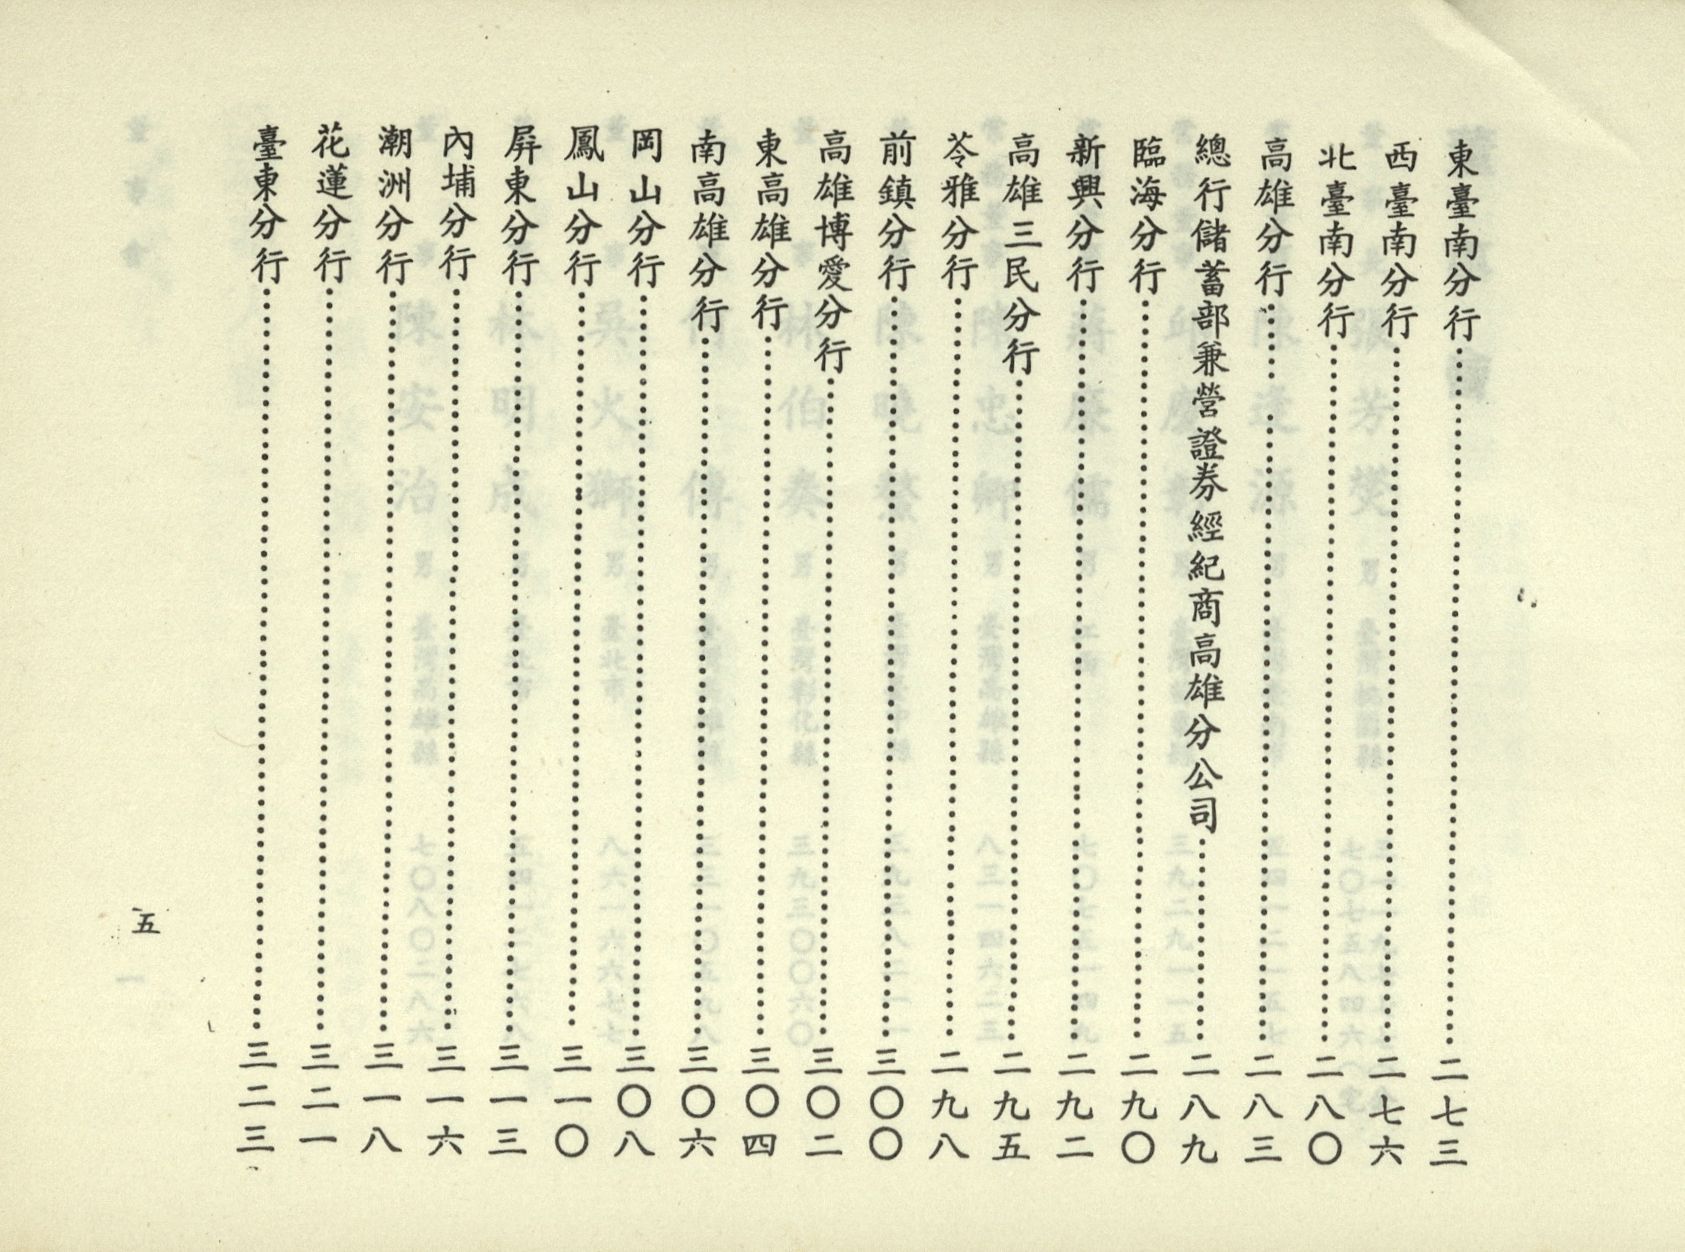 東臺南分行…………二七三
西臺南分行…………二七六
北臺南分行…………二八〇
高雄分行…………二八三
總行儲蓄部兼營證券經紀商高雄分公司…………二八九
臨海分行…………二九〇
新興分行…………二九二
高雄三民分行…………二九五
苓雅分行…………二九八
前鎮分行…………三〇〇
高雄博愛分行…………三〇二
東高雄分行…………三〇四
南高雄分行…………三〇六
岡山分行…………三〇八
鳳山分行…………三一〇
屏東分行…………三一三
內埔分行…………三一六
潮洲分行…………三一八
花蓮分行…………三二一
臺東分行…………三二三
五